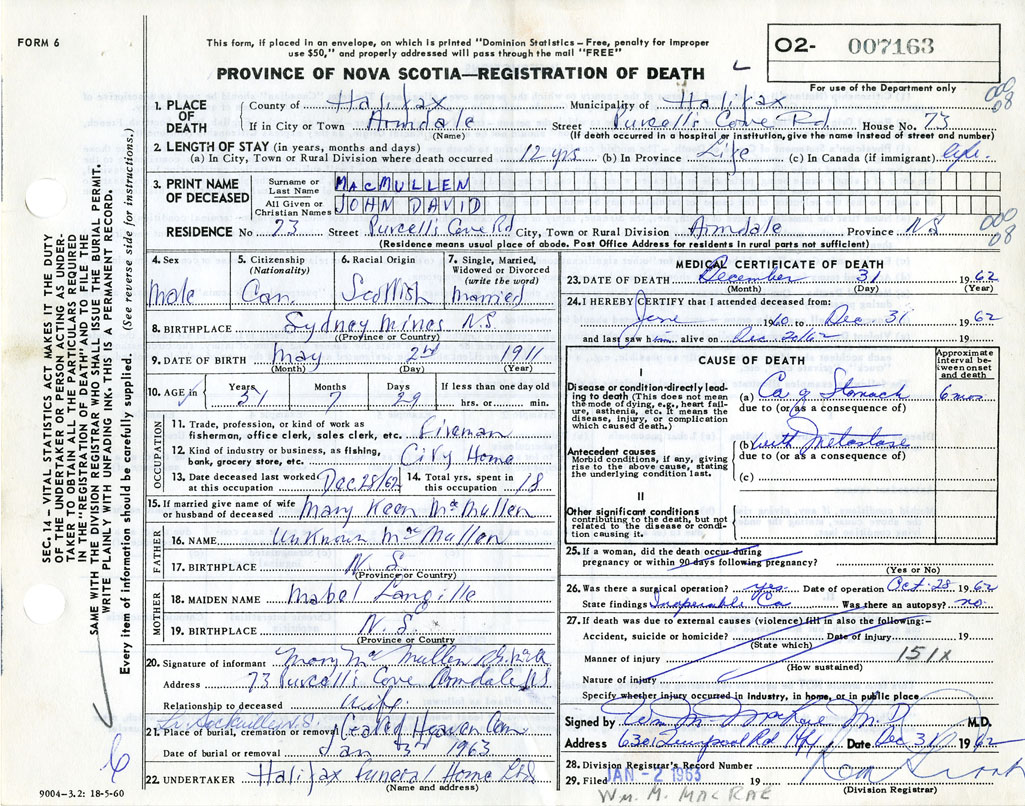 FORM 6
This form, if placed in an envelope, on which is printed "Dominion Statistics – Free, penalty for improper
use $50," and properly addressed will pass through the mail "FREE"
PROVINCE OF NOVA SCOTIA—REGISTRATION OF DEATH
O2- 007163
For use of the Department only
1. PLACE OF DEATH County of Halifax Municipality of Halifax
If in City or Town Armdale (Name) Street Purcell's Cove Rd House No. 73
(If death occurred in a hospital or institution, give the name instead of street and number)
000
08
2. LENGTH OF STAY (in years, months and days)
(a) In City, Town or Rural Division where death occurred 12 yrs (b) In Province Life (c) In Canada (if immigrant) life.
3. PRINT NAME OF DECEASED Surname or Last Name MACMULLEN
All Given or Christian Names JOHN DAVID
RESIDENCE No 73 Street Purcell's Cove Rd City, Town or Rural Division Armdale Province NS
(Residence means usual place of abode. Post Office Address for residents in rural parts not sufficient)
000
08
4. Sex Male
5. Citizenship (Nationality) Can.
6. Racial Origin Scottish
7. Single, Married, Widowed or Divorced (write the word) Married
8. BIRTHPLACE Sydney Mines N.S
(Province or Country)
9. DATE OF BIRTH May 2nd 1911
(Month) (Day) (Year)
10. AGE in Years 51 Months 7 Days 29 If less than one day old hrs. or min.
OCCUPATION
11. Trade, profession, or kind of work as fisherman, office clerk, sales clerk, etc. Fireman
12. Kind of industry or business, as fishing, bank, grocery store, etc. City Home
13. Date deceased last worked at this occupation Dec 28/62 14. Total yrs. spent in this occupation 18
15. If married give name of wife or husband of deceased Mary Keen McMullen
FATHER
16. NAME Unknown McMullen
17. BIRTHPLACE N.S.
(Province or Country)
MOTHER
18. MAIDEN NAME Mabel Langille
19. BIRTHPLACE N.S.
(Province or Country)
20. Signature of informant Mary McMullen
Address 73 Purcell's Cove Armdale NS
Relationship to deceased Wife
Sackville N.S.
21. Place of burial, cremation or removal Gate of Heaven Cem
Date of burial or removal Jan 3rd 1963
22. UNDERTAKER Halifax Funeral Home Ltd
(Name and address)
9004–3.2: 18-5-60
MEDICAL CERTIFICATE OF DEATH
23. DATE OF DEATH December 31 1962
(Month) (Day) (Year)
24. I HEREBY CERTIFY that I attended deceased from:
June 1960 to Dec. 31 1962
and last saw him alive on Dec 30/62 19
CAUSE OF DEATH
Approximate interval between onset and death
I
Disease or condition directly leading to death (This does not mean the mode of dying, e.g., heart failure, asthenia, etc. It means the disease, injury, or complication which caused death.)
(a) Ca of Stomach 6 mos
due to (or as a consequence of)
Antecedent causes
Morbid conditions, if any, giving rise to the above cause, stating the underlying condition last.
(b) with Metastases
due to (or as a consequence of)
(c)
II
Other significant conditions
contributing to the death, but not related to the disease or condition causing it.
25. If a woman, did the death occur during
pregnancy or within 90 days following pregnancy?
(Yes or No)
26. Was there a surgical operation? yes Date of operation Oct. 28 1962
State findings Inoperable Ca Was there an autopsy? no.
27. If death was due to external causes (violence) fill in also the following:–
Accident, suicide or homicide? Date of injury 19
(State which)
Manner of injury 151X
(How sustained)
Nature of injury
Specify whether injury occurred in industry, in home, or in public place
Signed by Wm. M. MacRae M.D. M.D.
Address 6301 Quinpool Rd Hfx Date Dec 31 1962
28. Division Registrar's Record Number
29. Filed JAN - 2 1963 19
(Division Registrar)
WM. M. MACRAE
SEC. 14 – VITAL STATISTICS ACT MAKES IT THE DUTY
OF THE UNDERTAKER OR PERSON ACTING AS UNDER-
TAKER TO OBTAIN ALL THE PARTICULARS REQUIRED
IN THE "REGISTRATION OF DEATH" AND TO FILE THE
SAME WITH THE DIVISION REGISTRAR WHO SHALL ISSUE THE BURIAL PERMIT.
WRITE PLAINLY WITH UNFADING INK. THIS IS A PERMANENT RECORD.
Every item of information should be carefully supplied. (See reverse side for instructions.)
6